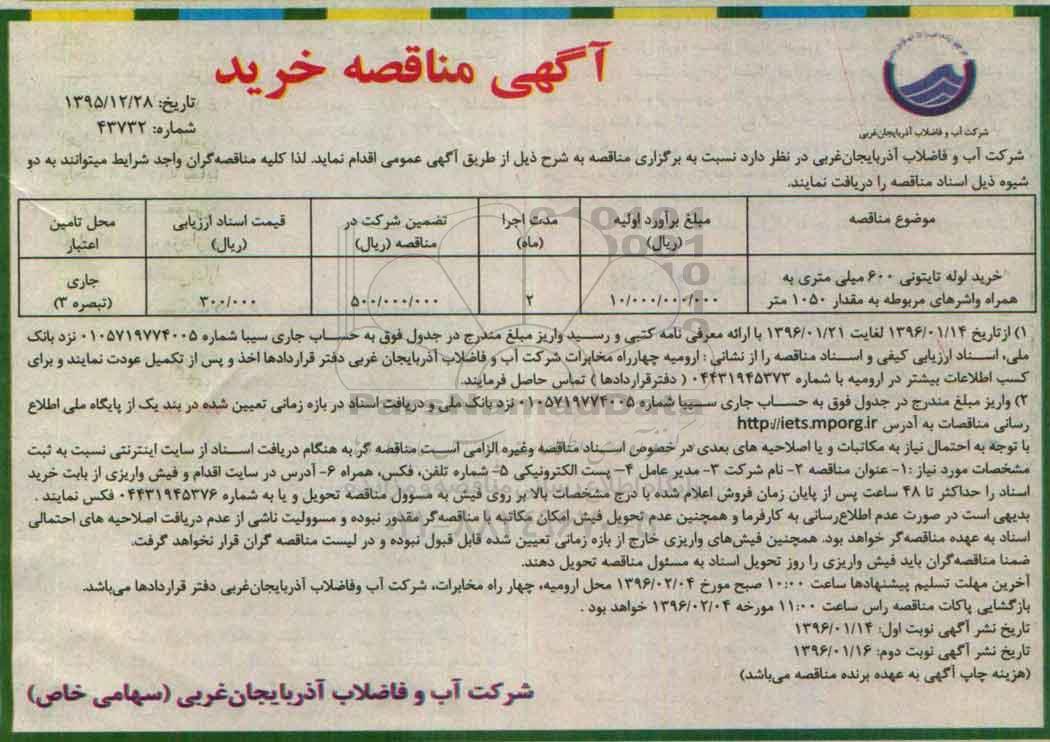 آگهی مناقصه خرید
شرکت آب و فاضلاب آذربایجان‌غربی
تاریخ: ۱۳۹۵/۱۲/۲۸
شماره: ۴۳۷۳۲
شرکت آب و فاضلاب آذربایجان‌غربی در نظر دارد نسبت به برگزاری مناقصه به شرح ذیل از طریق آگهی عمومی اقدام نماید. لذا کلیه مناقصه‌گران واجد شرایط میتوانند به دو
شیوه ذیل اسناد مناقصه را دریافت نمایند.
موضوع مناقصه
مبلغ برآورد اولیه (ریال)
مدت اجرا (ماه)
تضمین شرکت در مناقصه (ریال)
قیمت اسناد ارزیابی (ریال)
محل تامین اعتبار
خرید لوله تایتونی ۶۰۰ میلی متری به همراه واشرهای مربوطه به مقدار ۱۰۵۰ متر
۱۰/۰۰۰/۰۰۰/۰۰۰
۲
۵۰۰/۰۰۰/۰۰۰
۳۰۰/۰۰۰
جاری (تبصره ۳)
۱) ازتاریخ ۱۳۹۶/۰۱/۱۴ لغایت ۱۳۹۶/۰۱/۲۱ با ارائه معرفی نامه کتبی و رسید واریز مبلغ مندرج در جدول فوق به حساب جاری سیبا شماره ۰۱۰۵۷۱۹۷۷۴۰۰۵ نزد بانک
ملی، اسناد ارزیابی کیفی و اسناد مناقصه را از نشانی : ارومیه چهارراه مخابرات شرکت آب و فاضلاب آذربایجان غربی دفتر قراردادها اخذ و پس از تکمیل عودت نمایند و برای
کسب اطلاعات بیشتر در ارومیه با شماره ۰۴۴۳۱۹۴۵۳۷۳ ( دفترقراردادها ) تماس حاصل فرمایند.
۲) واریز مبلغ مندرج در جدول فوق به حساب جاری سیبا شماره ۰۱۰۵۷۱۹۷۷۴۰۰۵ نزد بانک ملی و دریافت اسناد در بازه زمانی تعیین شده در بند یک از پایگاه ملی اطلاع
رسانی مناقصات به آدرس http://iets.mporg.ir
با توجه به احتمال نیاز به مکاتبات و یا اصلاحیه های بعدی در خصوص اسناد مناقصه وغیره الزامی است مناقصه گر به هنگام دریافت اسناد از سایت اینترنتی نسبت به ثبت
مشخصات مورد نیاز :۱- عنوان مناقصه ۲- نام شرکت ۳- مدیر عامل ۴- پست الکترونیکی ۵- شماره تلفن، فکس، همراه ۶- آدرس در سایت اقدام و فیش واریزی از بابت خرید
اسناد را حداکثر تا ۴۸ ساعت پس از پایان زمان فروش اعلام شده با درج مشخصات بالا بر روی فیش به مسوول مناقصه تحویل و یا به شماره ۰۴۴۳۱۹۴۵۳۷۶ فکس نمایند .
بدیهی است در صورت عدم اطلاع‌رسانی به کارفرما و همچنین عدم تحویل فیش امکان مکاتبه با مناقصه‌گر مقدور نبوده و مسوولیت ناشی از عدم دریافت اصلاحیه های احتمالی
اسناد به عهده مناقصه‌گر خواهد بود. همچنین فیش‌های واریزی خارج از بازه زمانی تعیین شده قابل قبول نبوده و در لیست مناقصه گران قرار نخواهد گرفت.
ضمنا مناقصه‌گران باید فیش واریزی را روز تحویل اسناد به مسئول مناقصه تحویل دهند.
آخرین مهلت تسلیم پیشنهادها ساعت ۱۰:۰۰ صبح مورخ ۱۳۹۶/۰۲/۰۴ محل ارومیه، چهار راه مخابرات، شرکت آب وفاضلاب آذربایجان‌غربی دفتر قراردادها می‌باشد.
بازگشایی پاکات مناقصه راس ساعت ۱۱:۰۰ مورخه ۱۳۹۶/۰۲/۰۴ خواهد بود .
تاریخ نشر آگهی نوبت اول: ۱۳۹۶/۰۱/۱۴
تاریخ نشر آگهی نوبت دوم: ۱۳۹۶/۰۱/۱۶
(هزینه چاپ آگهی به عهده برنده مناقصه می‌باشد)
شرکت آب و فاضلاب آذربایجان‌غربی (سهامی خاص)
ParsNamadData